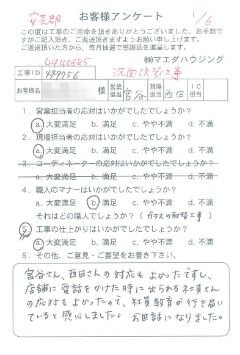 安芸郡 お客様アンケート 1/6
この度は工事のご用命を頂きありがとうございました。お手数で
すがご記入頂き、ご返送頂きますようお願い申し上げます。
ご返送頂いた方から、毎月抽選で感謝品を進呈します。
㈱マエダハウジング
工事ID 洗面改装工事
お客様名 営業担当 宮谷 工事担当 西田
1. 営業担当者の応対はいかがでしたでしょうか?
a.大変満足 b.満足 c.やや不満 d.不満
2. 現場担当者の応対はいかがでしたでしょうか?
a.大変満足 b.満足 c.やや不満 d.不満
3. コーディネーターの応対はいかがでしたでしょうか?
a.大変満足 b.満足 c.やや不満 d.不満
4. 職人のマナーはいかがでしたでしょうか?
a.大変満足 b.満足 c.やや不満 d.不満
それはどの職人でしょうか?
5. 工事の仕上がりはいかがでしたでしょうか?
a.大変満足 b.満足 c.やや不満 d.不満
6. その他、ご意見・ご要望をお書き下さい。
宮谷さん、西田さんの対応もよかったですし、
店舗に電話をかけた時に出られる社員さん
の応対もよかったので、社員教育が行き届い
ていると感心しました。お世話になりました。